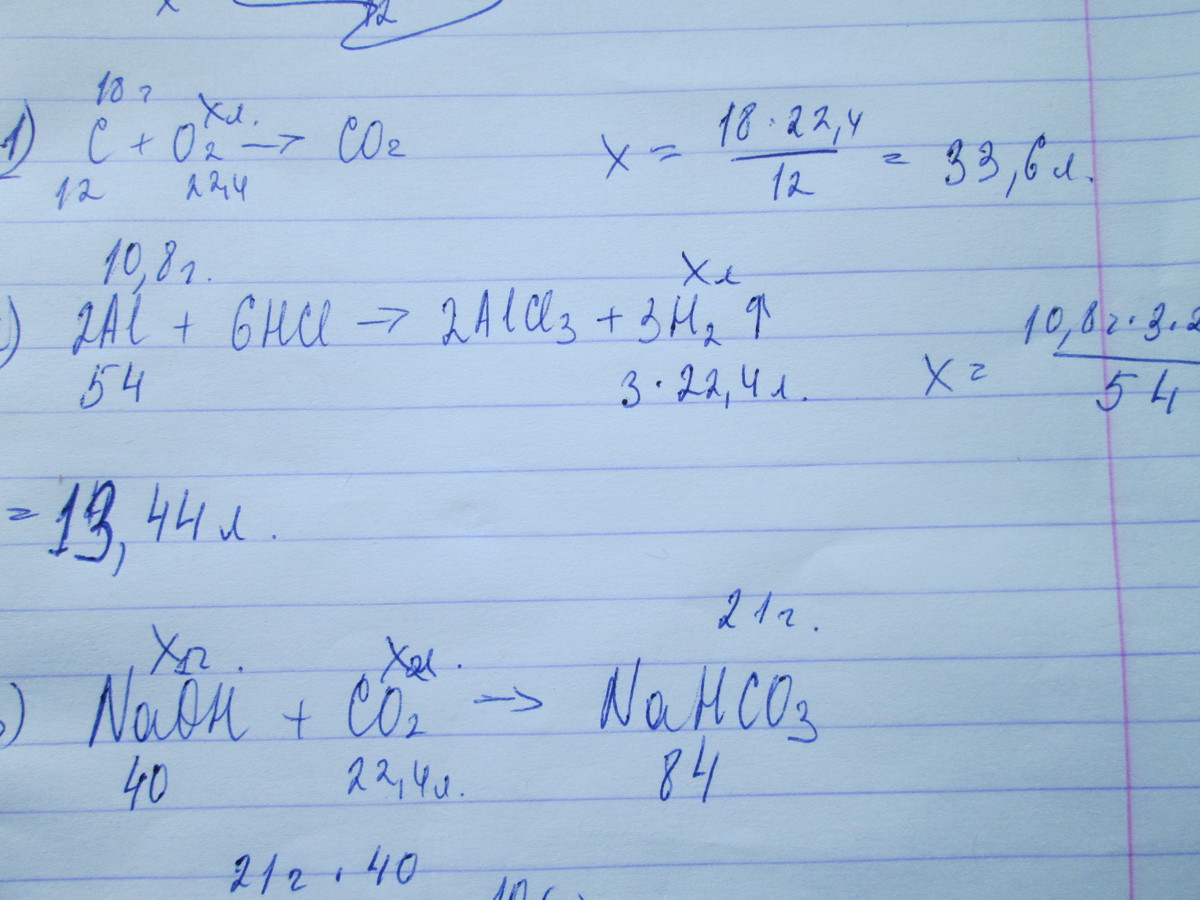 x 12
18 г xл.
1) C + O2 → CO2 x = 18·22,4 / 12 = 33,6 л.
12 22,4
10,8 г. xл
) 2Al + 6HCl → 2AlCl3 + 3H2 ↑ x = 10,8 г·3·2 / 54
54 3·22,4 л.
= 13,44 л.
21 г.
x1г. x2л.
) NaOH + CO2 → NaHCO3
40 22,4 л. 84
21 г · 40